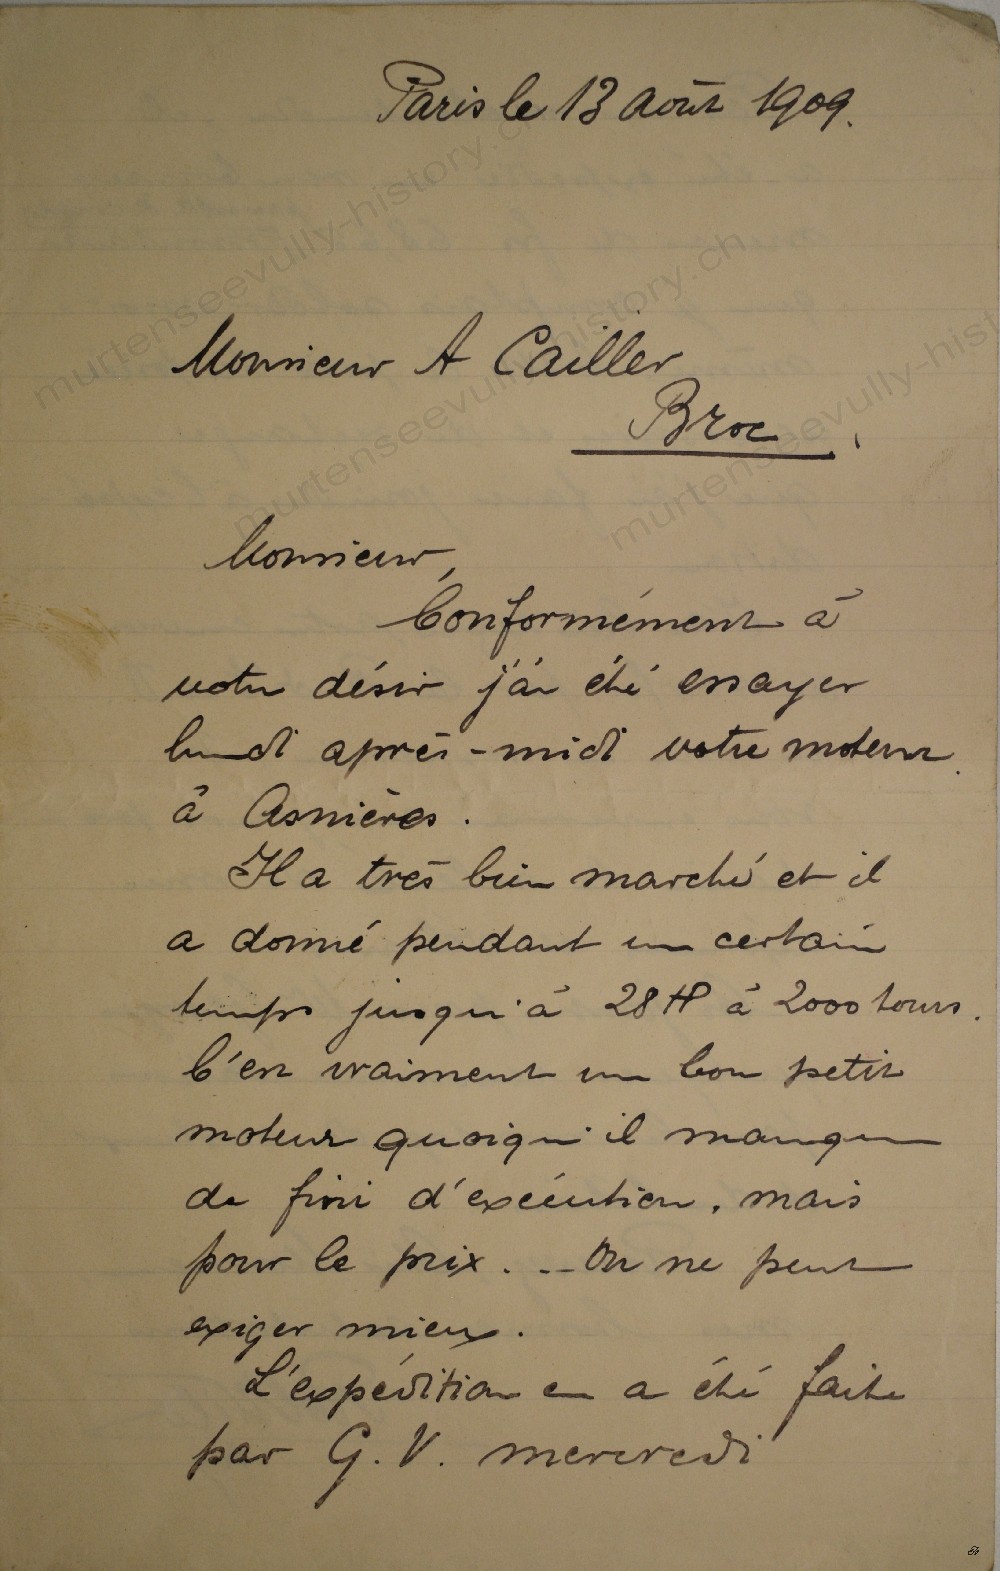 Paris le 13 août 1909.
Monsieur A Cailler
Broc
Monsieur,
Conformément à
votre désir j'ai été essayer
lundi après-midi votre moteur
à Asnières.
Il a très bien marché et il
a donné pendant un certain
temps jusqu'à 28 HP à 2000 tours.
C'est vraiment un bon petit
moteur quoiqu'il manque
de fini d'exécution, mais
pour le prix... On ne peut
exiger mieux.
L'expédition en a été faite
par G. V. mercredi
murtenseevully-history.ch
murtenseevully-history.ch
murtenseevully-hist